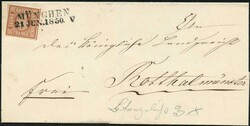 MÜNCHEN
21 JUN. 1850. V
An
das Königliche Landgericht
Frei
Rotthalmünster